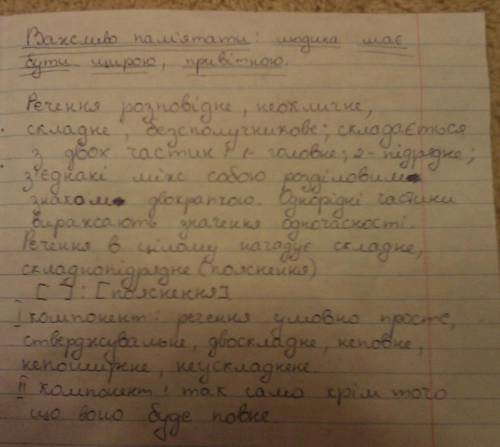 Важливо пам'ятати: людина має
бути щирою, привітною.
Речення розповідне, неокличне,
складне, безсполучникове; складається
з двох частин: 1- головне; 2- підрядне;
з'єднані між собою розділовим
знаком двокрапчою. Однорідні частини
виражають значення одночасності.
Речення в цілому нагадує складне,
складнопідрядне (пояснення)
[ ] : [пояснення]
I компонент: речення умовно просте,
стверджувальне, двоскладне, неповне,
непоширене, неускладнене.
II компонент: так само крім того
що воно буде повне